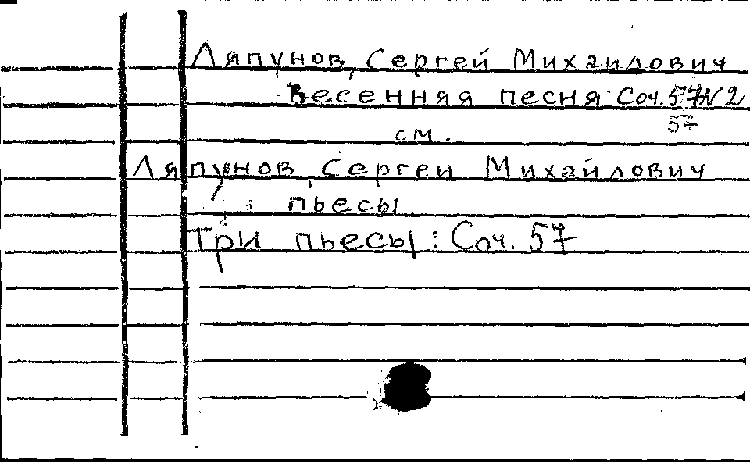 Ляпунов, Сергей Михаилович
Весенняя песня Соч. 57 №2
57
см.
Ляпунов, Сергей Михайлович
пьесы
Три пьесы: Соч. 57